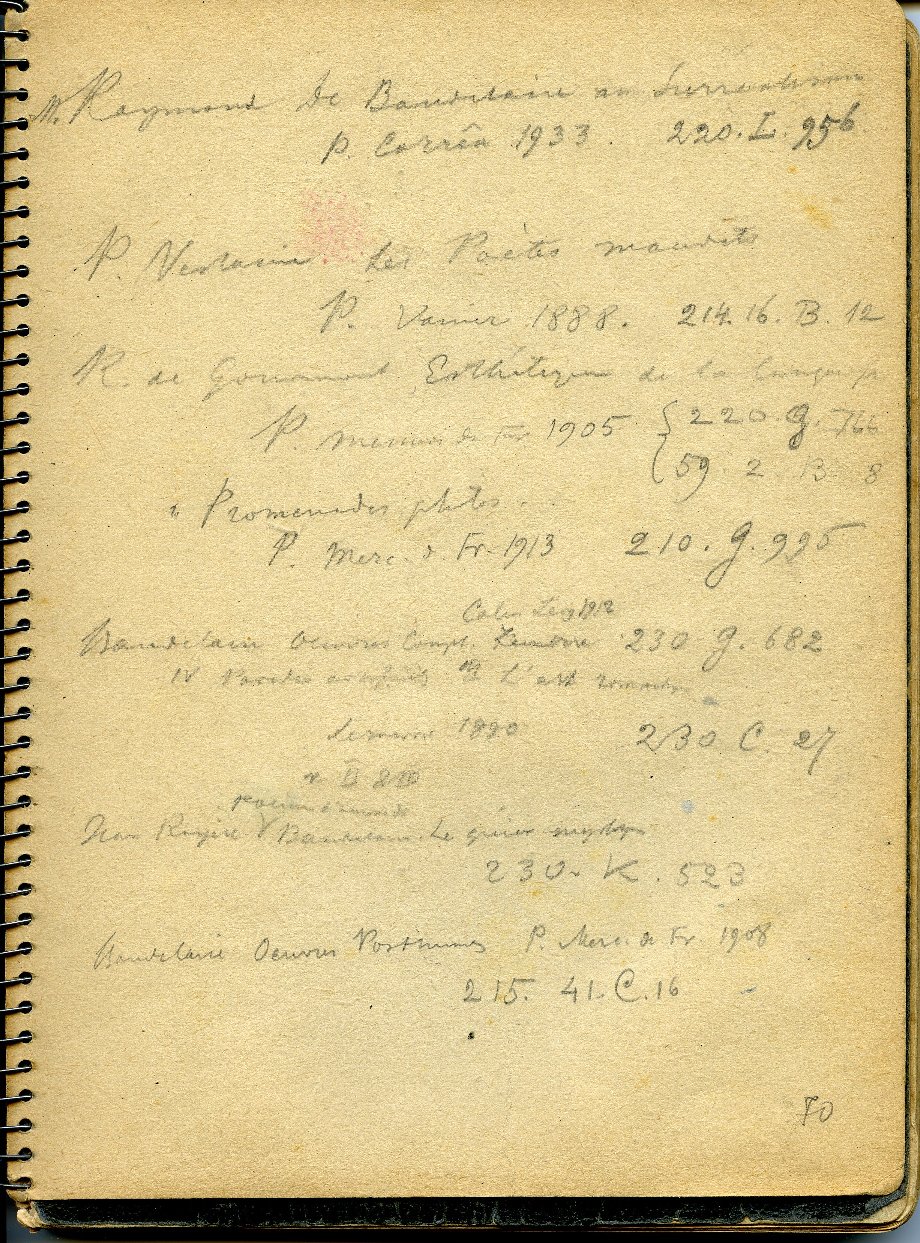 M. Raymond De Baudelaire au Surréalisme
P. Corrêa 1933. 220. I. 956
P. Verlaine Les Poètes maudits
P. Vanier 1888. 214.16. B. 12
R. de Gourmont Esthétique de la langue f
P. Mercure de Fr 1905 220 g. 766
59. 2. B 8
" Promenades philos...
P. Merc. d Fr. 1913 210. g. 995
Calm Levy 1912
Baudelaire Oeuvres Compl. Lemerre 230 g. 682
IV Paradis artificiels L'art romantique
Lemerre 1890 230 C. 27
v II & III
Jean Royère Baudelaire Le génie mystique
230. K. 523
Baudelaire Oeuvres Posthumes P. Merc. de Fr. 1908
215. 41. C. 16
70